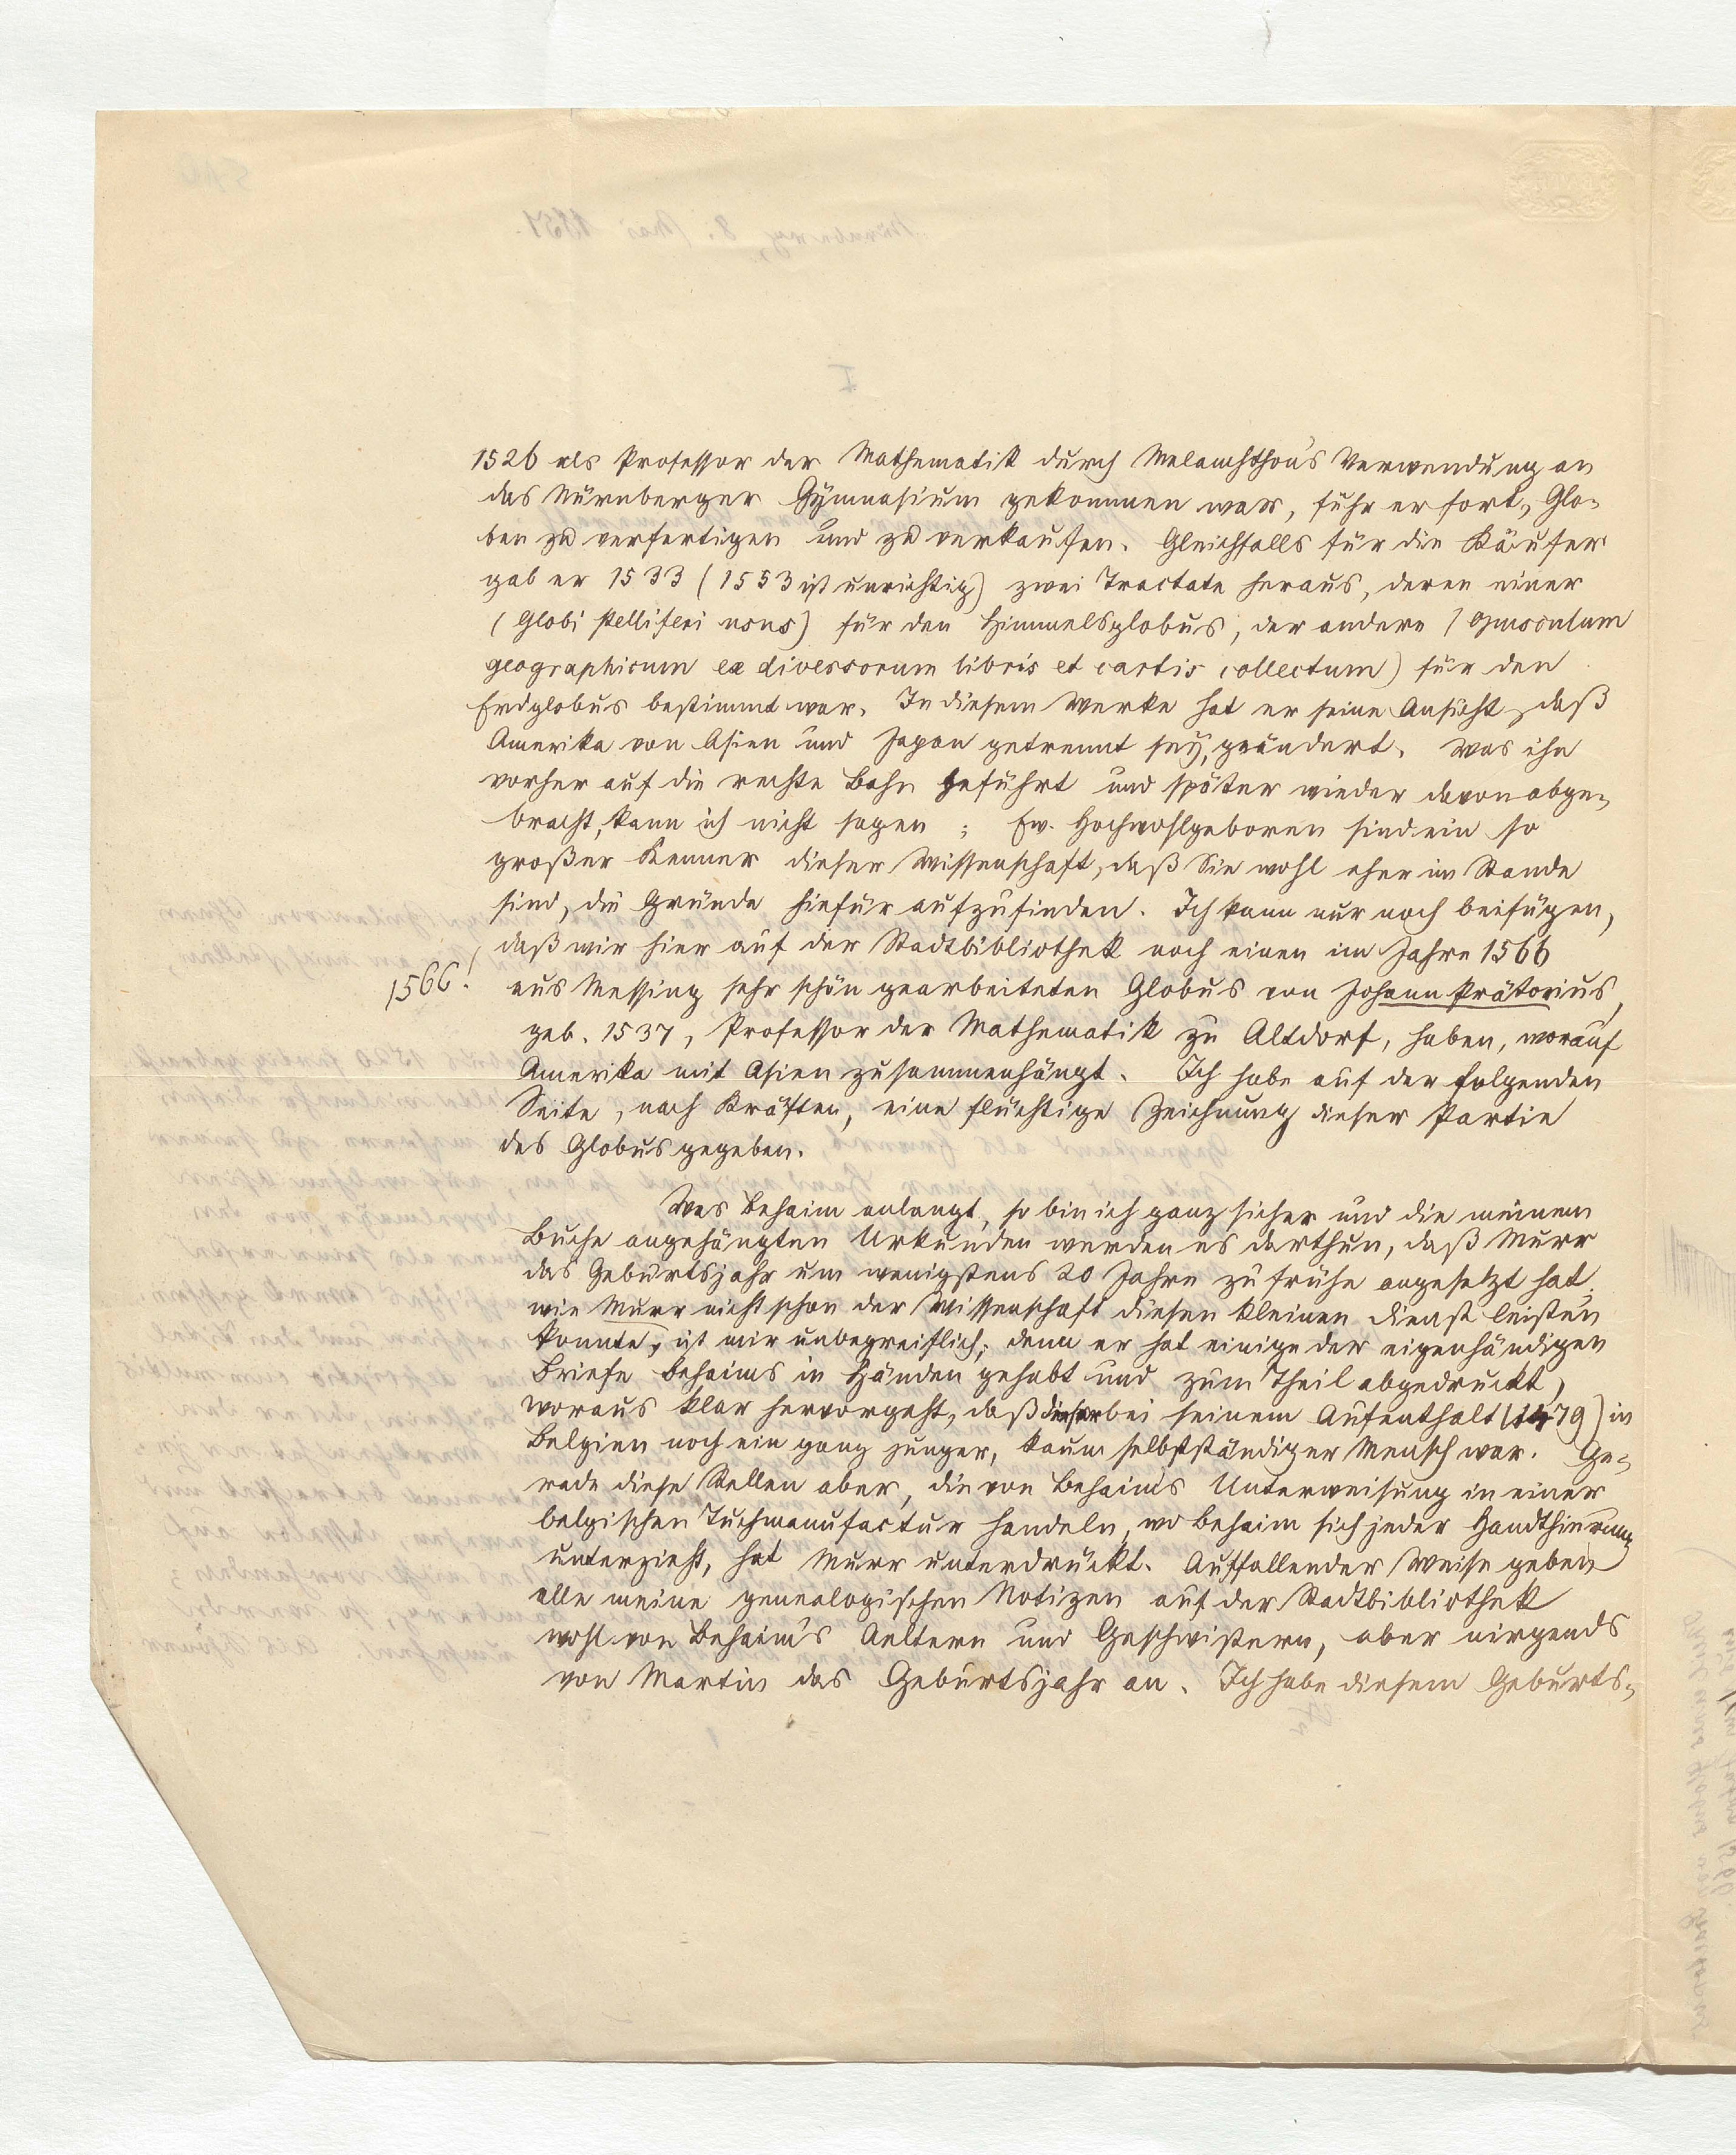 1526 als Professor der Mathematik durch Melanchthon's Verwendung an
das Nürnberger Gymnasium gekommen war, fuhr er fort, Glo-
ben zu verfertigen und zu verkaufen. Gleichfalls für die Käufer
gab er 1533 (1553 ist unrichtig) zwei Tractate heraus, deren einer
(Globi stelliferi usus) für den Himmelsglobus, der andere (Opusculum
geographicum ex diversorum libris et cartis collectum) für den
Erdglobus bestimmt war. In diesem Werke hat er seine Ansicht, daß
Amerika von Asien und Japan getrennt sey, geändert. Was ihn
vorher auf die rechte Bahn geführt und später wieder davon abge-
bracht, kann ich nicht sagen; Ew. Hochwohlgeboren sind ein so
großer Kenner dieser Wissenschaft, daß Sie wohl eher im Stande
sind, die Gründe hiefür aufzufinden. Ich kann nur noch beifügen,
daß wir hier auf der Stadtbibliothek noch einen im Jahre 1566
1566!
aus Messing sehr schön gearbeiteten Globus von Johann Prätorius,
geb. 1537, Professor der Mathematik zu Altdorf, haben, worauf
Amerika mit Asien zusammenhängt. Ich habe auf der folgenden
Seite, nach Kräften, eine flüchtige Zeichnung dieser Partie
des Globus gegeben.
Was Behaim anlangt, so bin ich ganz sicher und die meinem
Buche angehängten Urkunden werden es darthun, daß Murr
das Geburtsjahr um wenigstens 20 Jahre zu frühe angesetzt hat.
wie Murr nicht schon der Wissenschaft diesen kleinen Dienst leisten
konnte, ist mir unbegreiflich; denn er hat einige der eigenhändigen
Briefe Behaims in Händen gehabt und zum Theil abgedruckt,
woraus klar hervorgeht, daß dieser bei seinem Aufenthalt (1479) in
Belgien noch ein ganz junger, kaum selbstständiger Mensch war. Ge-
rade diese Stellen aber, die von Behaim's Unterweisung in einer
belgischen Tuchmanufactur handeln, wo Behaim sich jeder Handthierung
unterzieht, hat Murr unterdrückt. Auffallender Weise geben
alle meine genealogischen Notizen auf der Stadtbibliothek
wohl von Behaim's Aeltern und Geschwistern, aber nirgends
von Martin das Geburtsjahr an. Ich habe diesem Geburts-